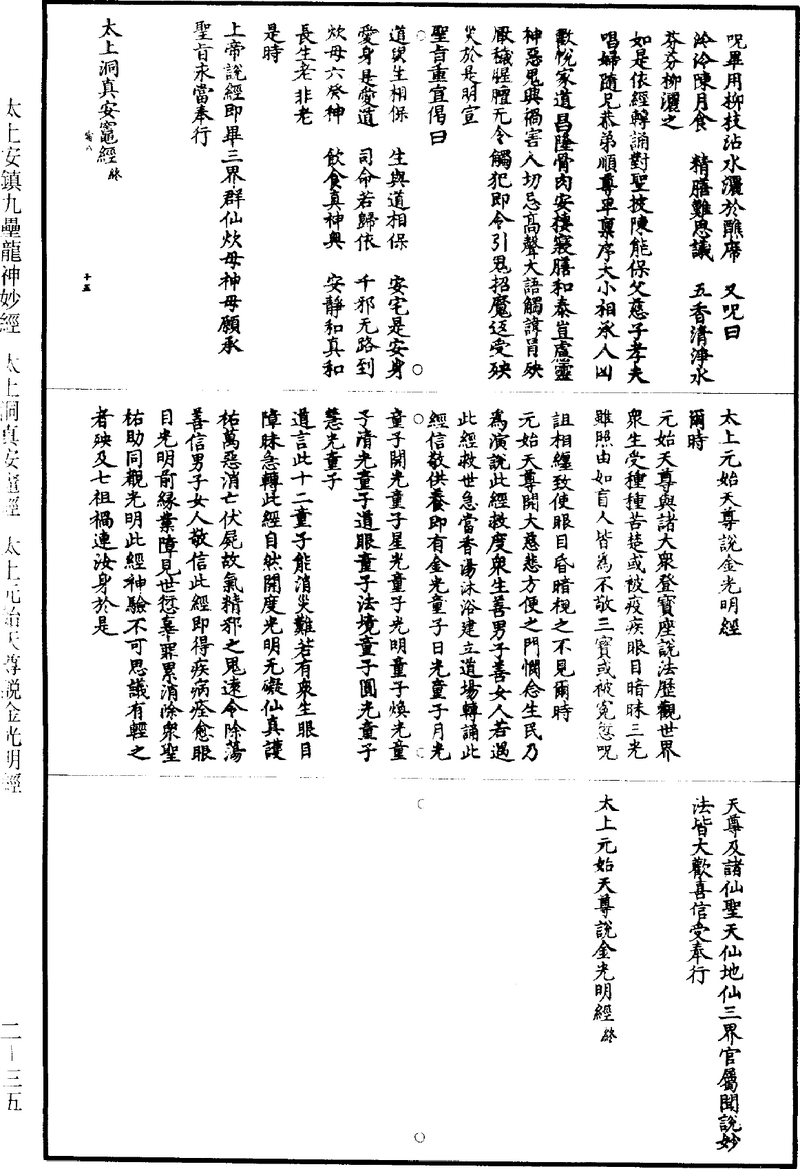 呪畢用柳枝沾水灑於醮席　又呪曰
泠泠陳月食　精膳難思議　五香清淨水
芬芬柳灑之
如是依經轉誦對聖披陳能保父慈子孝夫
唱婦隨兄恭弟順尊卑稟序大小相承人凶
歡悅家道昌隆骨肉安棲寢膳和泰豈慮靈
神惡鬼興禍害人切忌高聲大語觸諱冐殃
厭穢腥膻无令觸犯即令引鬼招魔返受殃
災於是明宣
聖旨重宣偈曰
道與生相保　生與道相保　安宅是安身
愛身是愛道　司命若歸依　千邪无路到
炊母六癸神　飲食真神與　安靜和真和
長生老非老
是時
上帝說經即畢三界群仙炊母神母願承
聖旨永當奉行
太上洞真安竈經 終
十五
太上元始天尊說金光明經
爾時
元始天尊與諸大衆登寶座說法歷觀世界
衆生受種種苦楚或被疫疾眼目暗昧三光
雖照由如盲人皆為不敬三寶或被冤愆呪
詛相纏致使眼目昏暗視之不見爾時
元始天尊開大慈悲方便之門憫念生民乃
為演說此經救度衆生善男子善女人若遇
此經救世急當香湯沐浴建立道場轉誦此
經信敬供養即有金光童子日光童子月光
童子開光童子星光童子光明童子煥光童
子清光童子道眼童子法境童子圓光童子
慧光童子
道言此十二童子能消災難若有衆生眼目
障昧急轉此經自然開度光明无礙仙真護
祐萬惡消亡伏屍故氣精邪之鬼遠令除蕩
善信男子女人敬信此經即得疾病痊愈眼
目光明前緣業障見世愆辜罪累消除衆聖
祐助同觀光明此經神驗不可思議有輕之
者殃及七祖禍連汝身於是
天尊及諸仙聖天仙地仙三界官屬聞說妙
法皆大歡喜信受奉行
太上元始天尊說金光明經 終
太上安鎮九壘龍神妙經　太上洞真安竈經　太上元始天尊説金光明經
二－三五